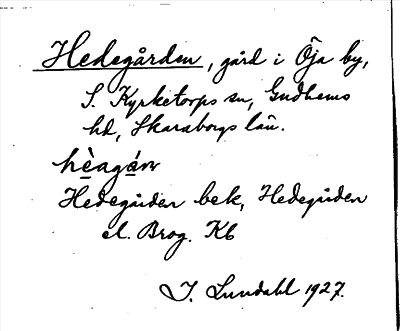 Hedegården, gård i Öja by,
S. Kyrketorps sn, Gudhems
hd, Skaraborgs län.
hèagán
Hedegården bek, Hedegården
el. Brog. Kb
I. Lundahl 1927.